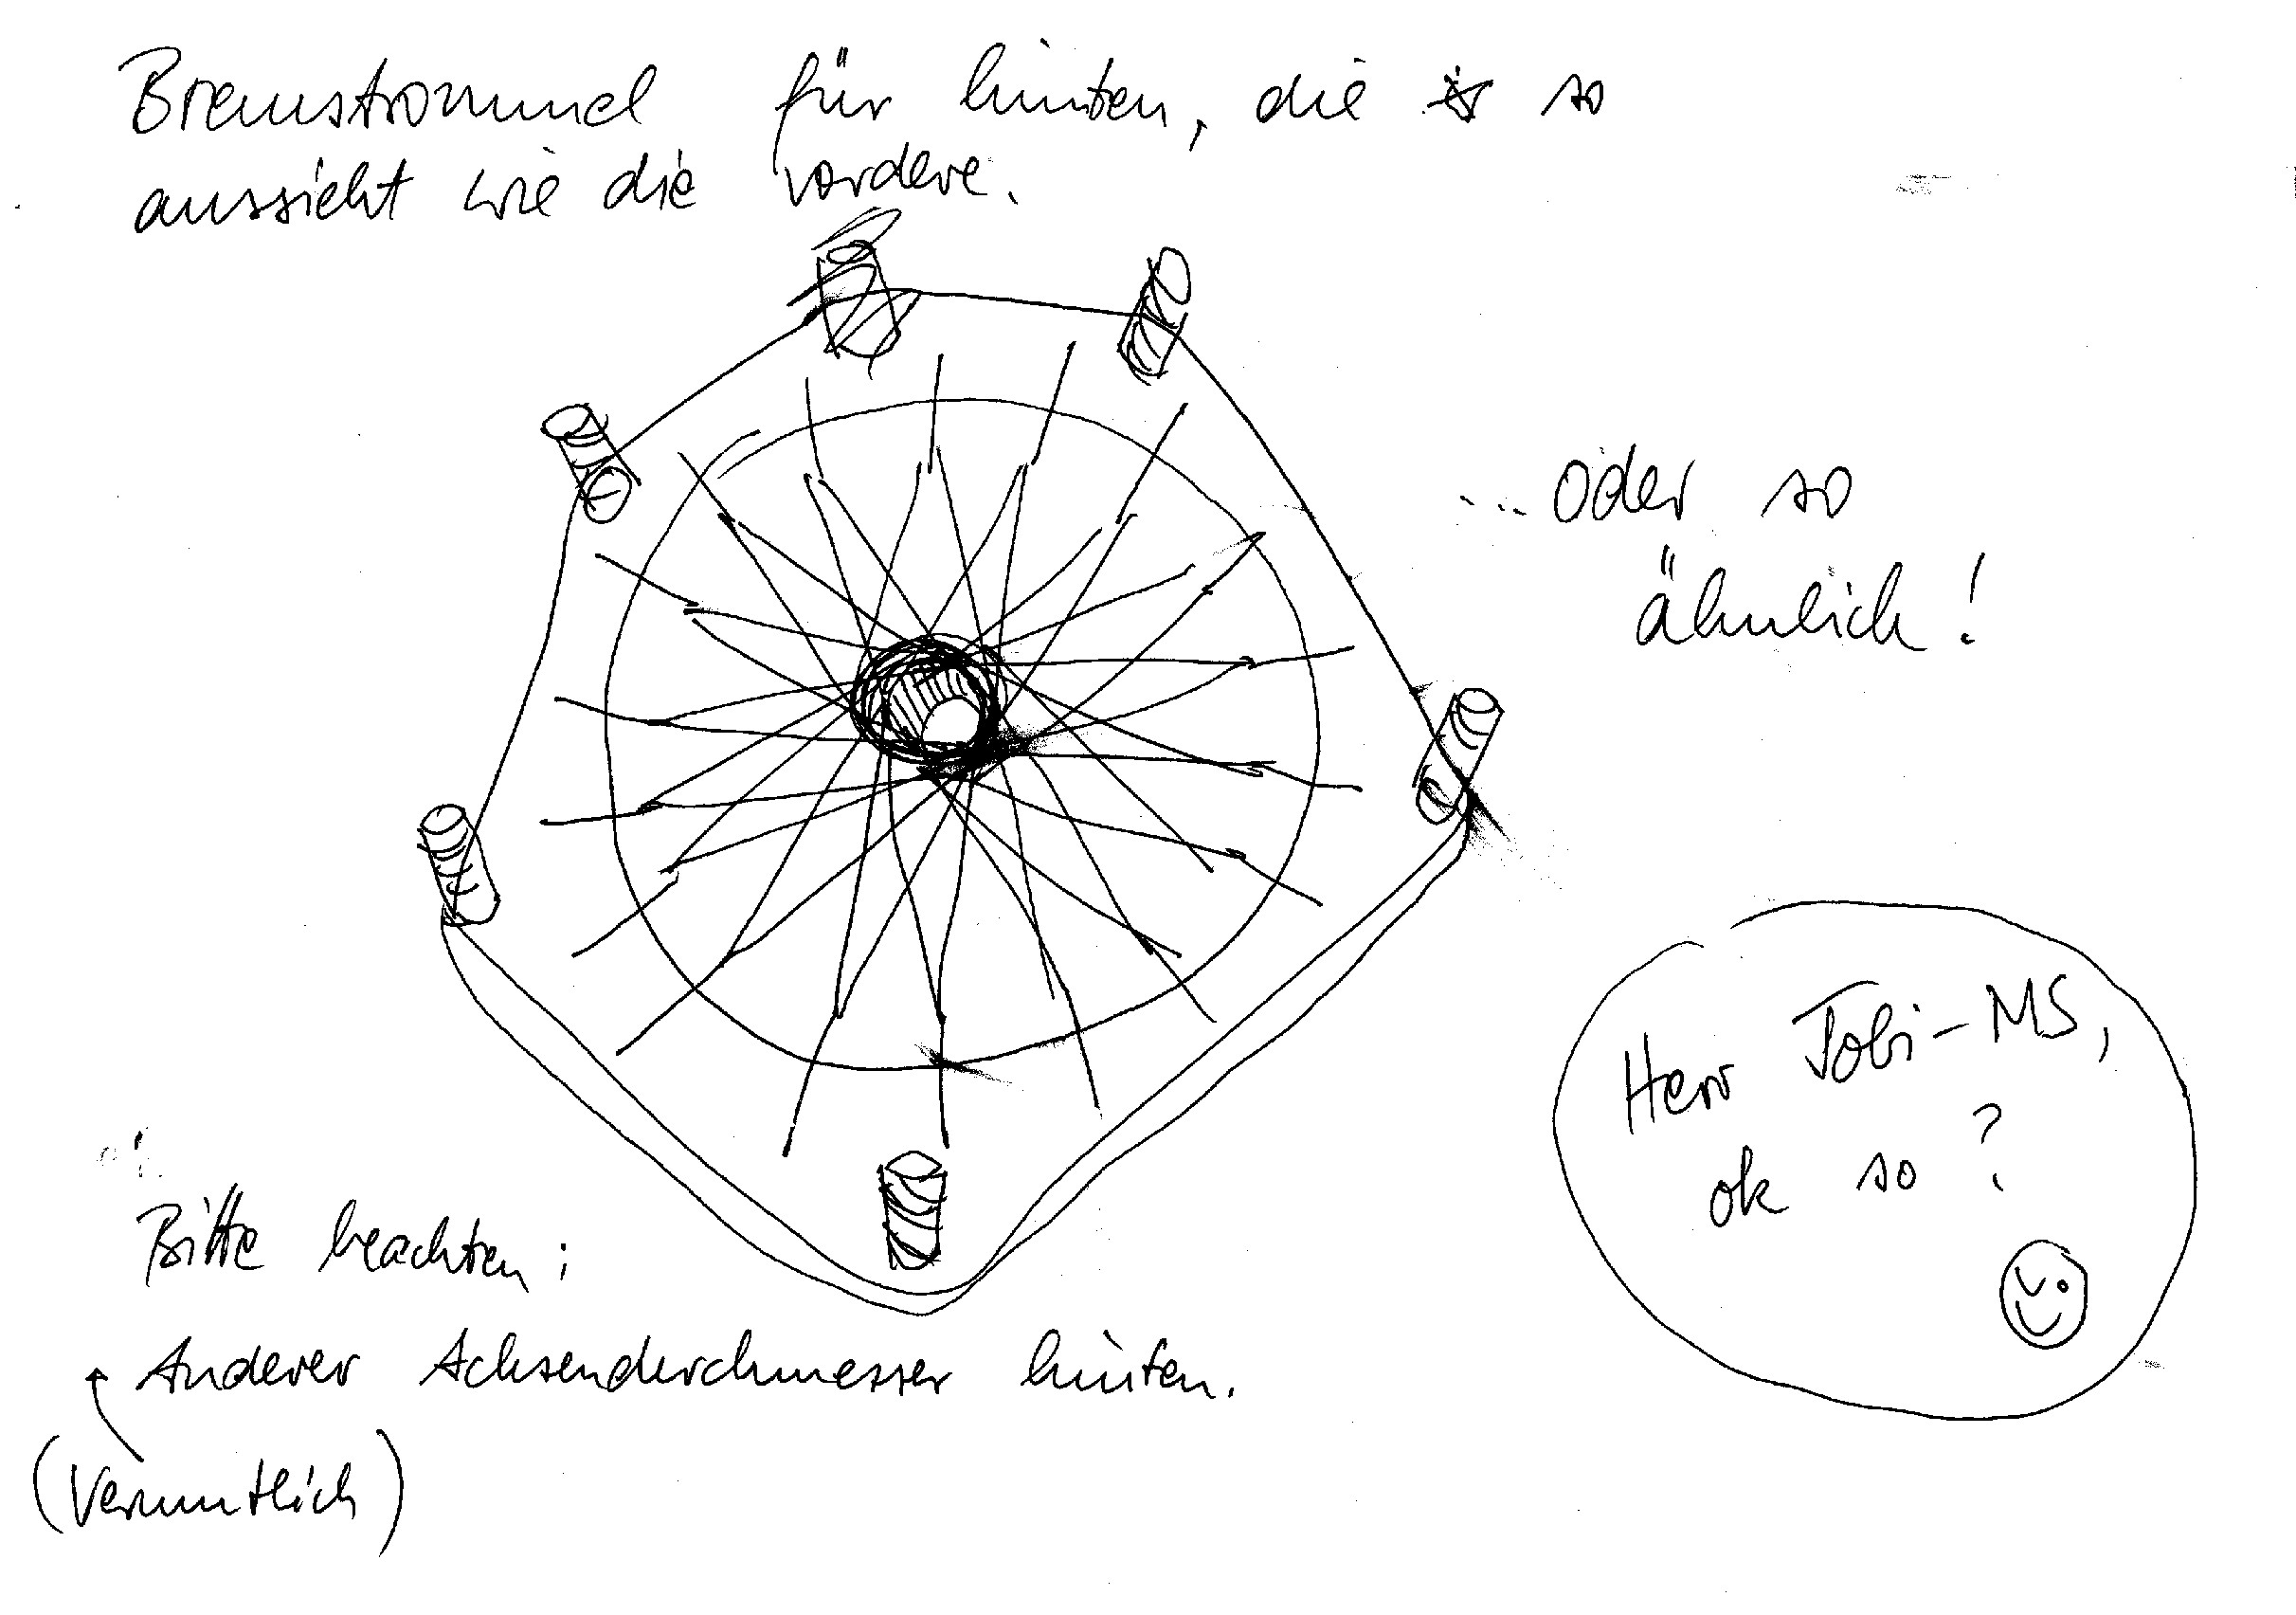 Bremstrommel für hinten, die so
aussieht wie die vordere.
... oder so
ähnlich!
Herr Tobi-MS,
ok so?
Bitte beachten:
Anderer Achsendurchmesser hinten.
(Vermutlich)